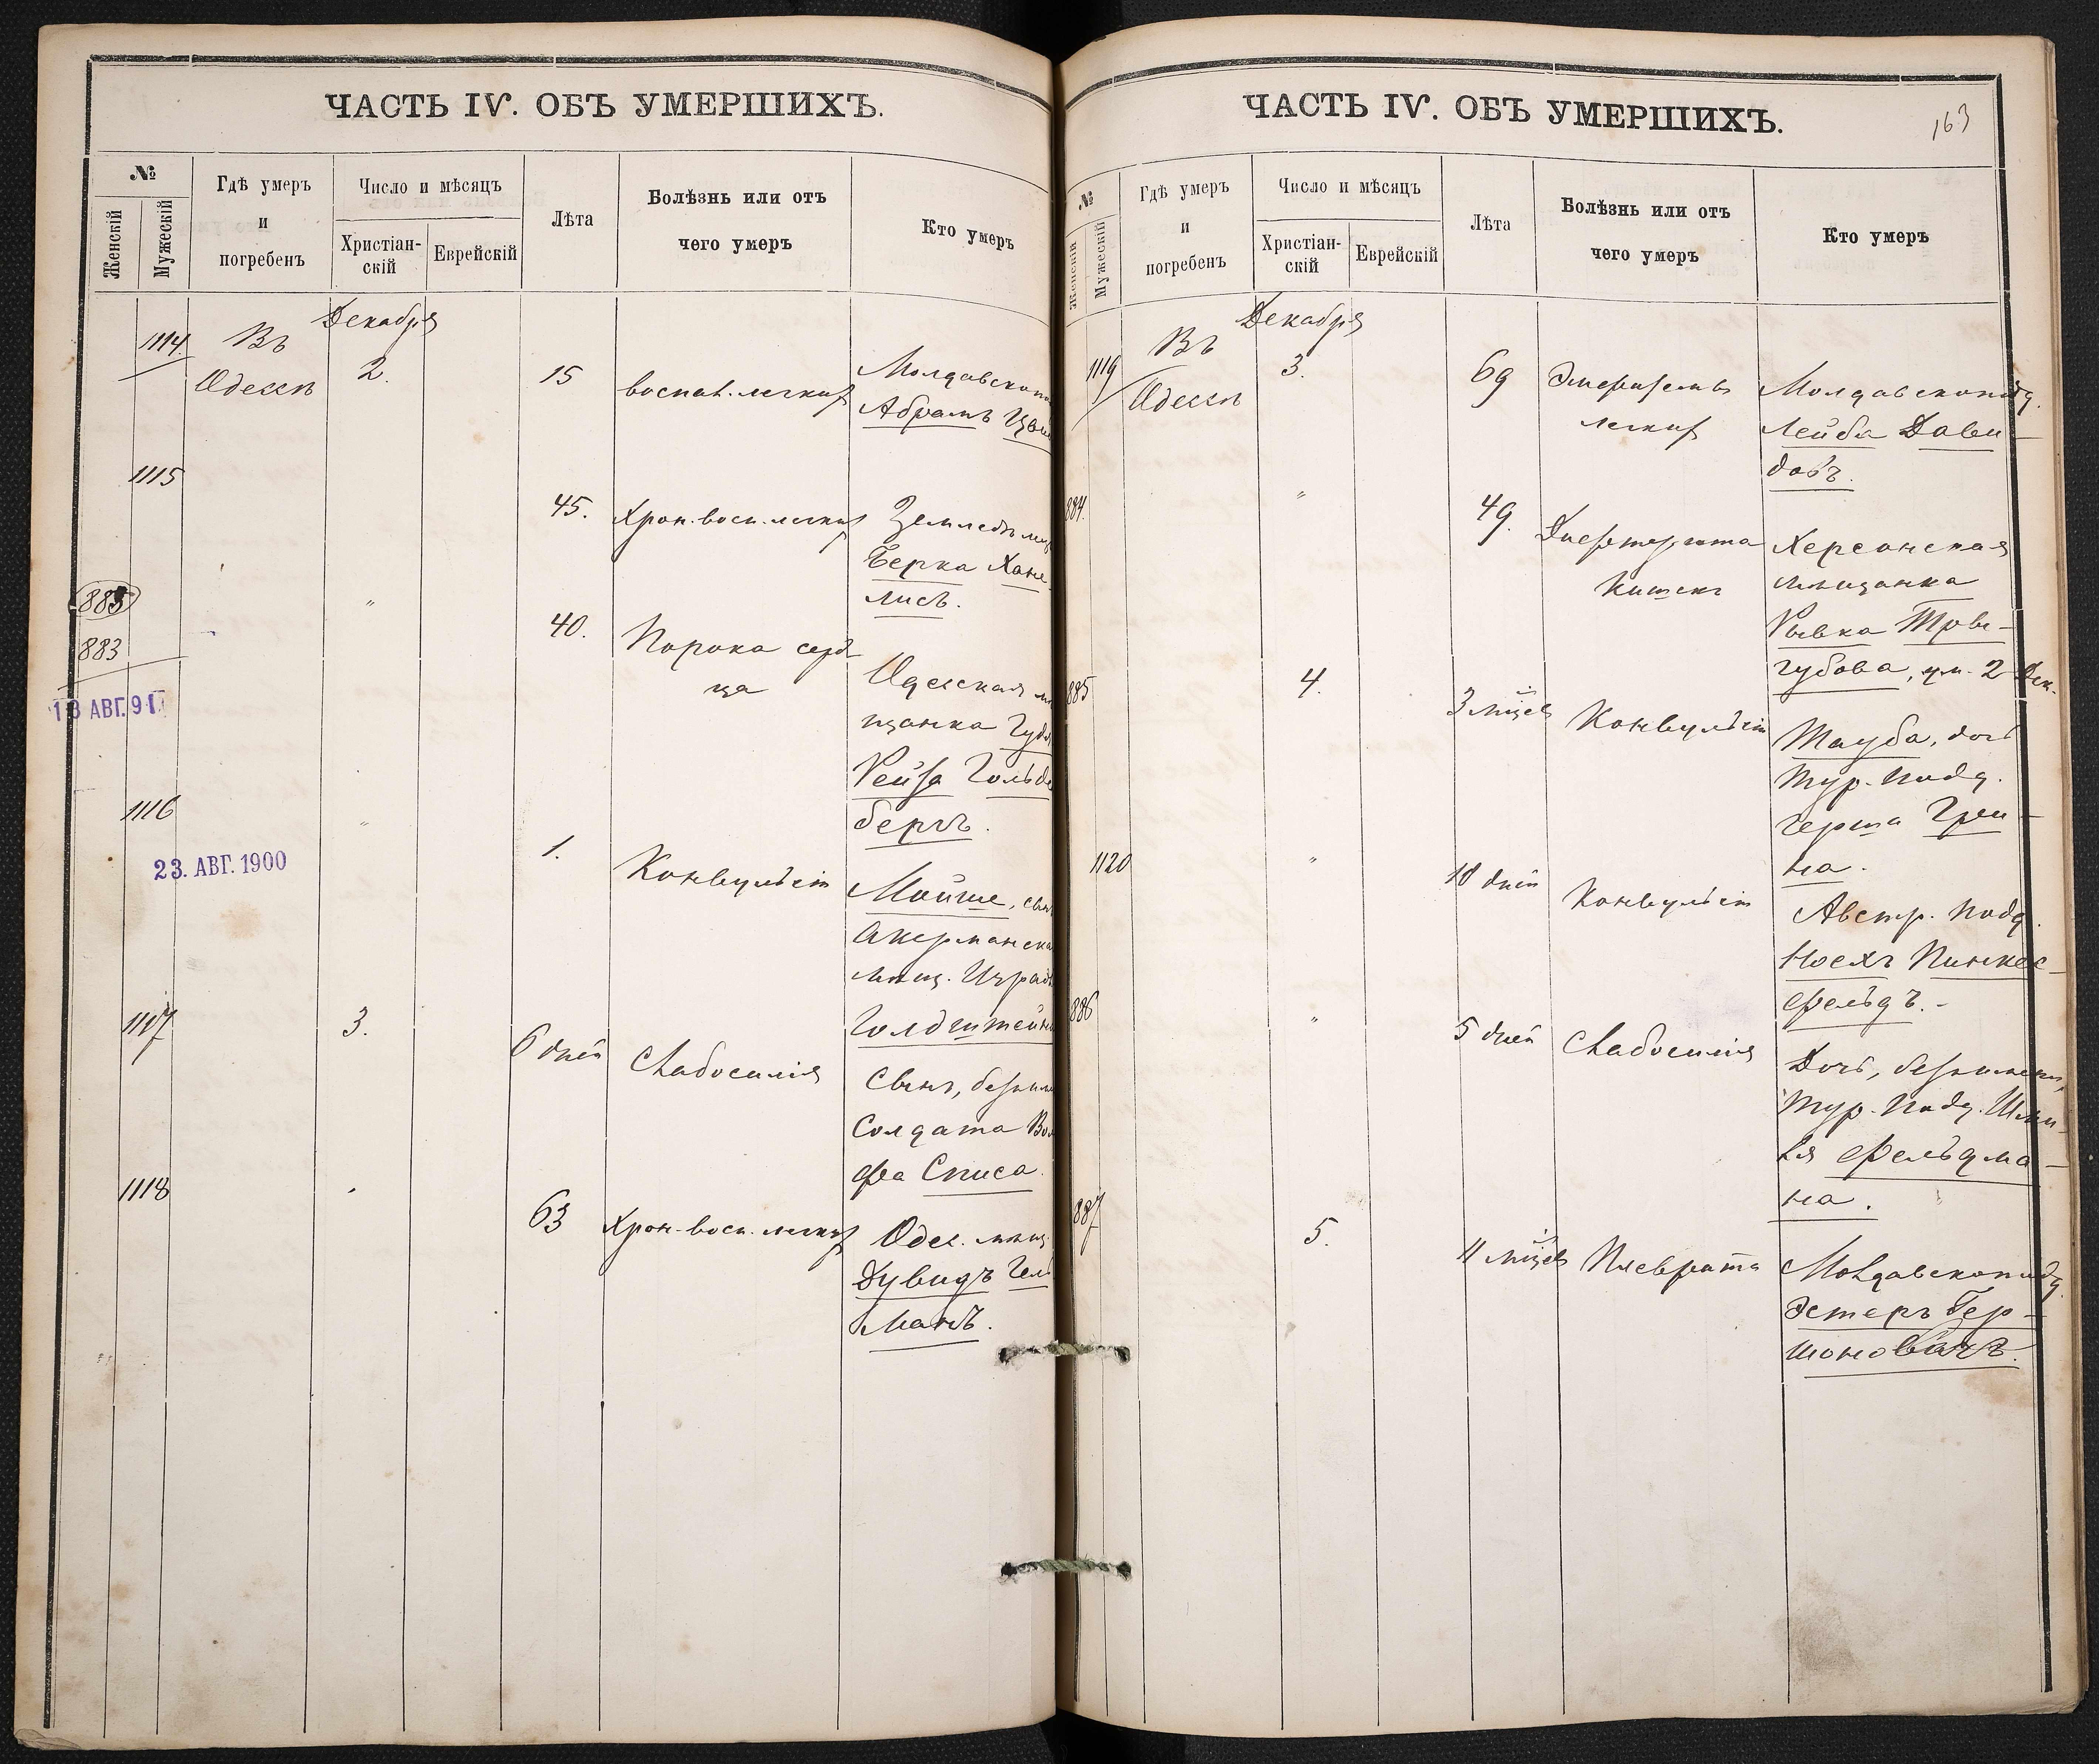 ЧАСТЬ IV. ОБЪ УМЕРШИХЪ.
№
Женскій
Мужескій
Гдѣ умеръ
и
погребенъ
Число и мѣсяцъ
Христіан-
скій
Еврейскій
Лѣта
Болѣзнь или отъ
чего умеръ
Кто умеръ
Декабря
1114. Въ
Одессѣ 2. 15 воспал. легких Молдавскопо
Абрамъ
1115
45. Хрон. восп. легких
Берка Хане
лисъ.
885 "
883
40. Порока серд
ца
Одесская мѣ
щанка
Рейза Гольд
бергъ.
13 АВГ. 91
1116 " 1. Конвульсіи Мойше, сын
23. АВГ. 1900
Акерманска
мѣщ. Израиля
Голдштейн
1117 3. 6 дней Слабосилія Сынъ, безыме
Солдата Вол
фа Списа.
1118 63 Хрон. восп. легких Одес. мѣщ.
Дувидъ Гель
манъ.
ЧАСТЬ IV. ОБЪ УМЕРШИХЪ.
163
№
Женскій
Мужескій
Гдѣ умеръ
и
погребенъ
Число и мѣсяцъ
Христіан-
скій
Еврейскій
Лѣта
Болѣзнь или отъ
чего умеръ
Кто умеръ
Декабря
1119 Въ
Одессѣ 3. 69 Эмфиземы
легких
Молдавскоподд.
Лейба Дави-
довъ.
884. " 49. Дизентерита
Кишекъ
Херсонская
мѣщанка
Рывка Тров-
губова, ум. 2 Дек.
885 4. 3 мѣсев Конвульсіи Тауба, дочь
тур. подд.
Герша Грей-
на.
1120 " 10 дней Конвульсіи Австр. подд.
Ноехъ Пинкес-
фельдъ.-
886 " 5 дней Слабосилія Дочь, безымен,
тур. подд. Шми-
ля Фельдма-
на.
887 5. 11 мѣсев Плеврита Молдавскоподд.
Эстеръ Гер-
шоновичъ.